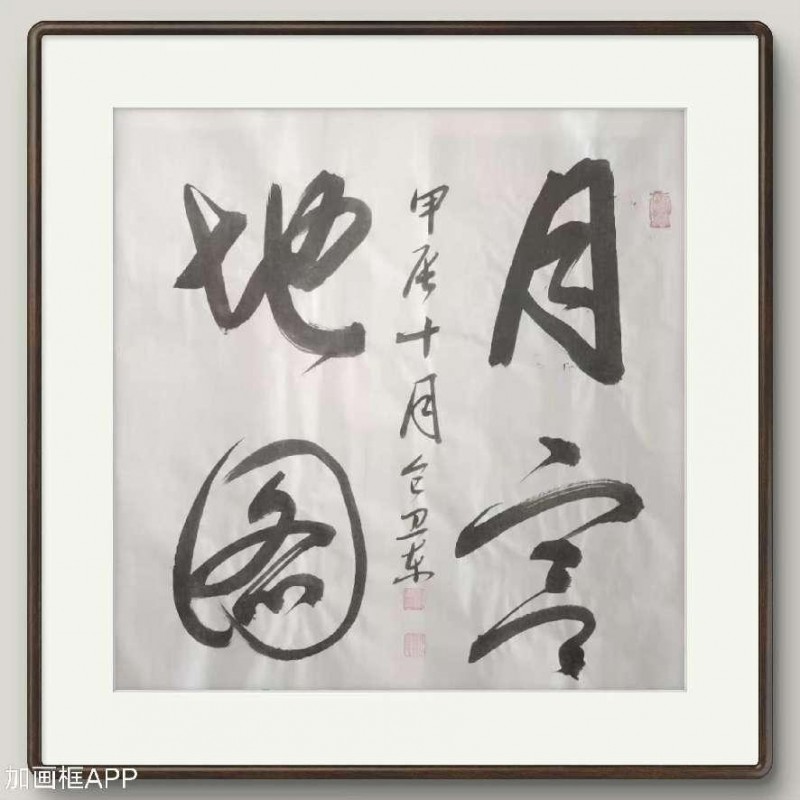 月宫
地图
甲辰十月仝卫东
加画框APP